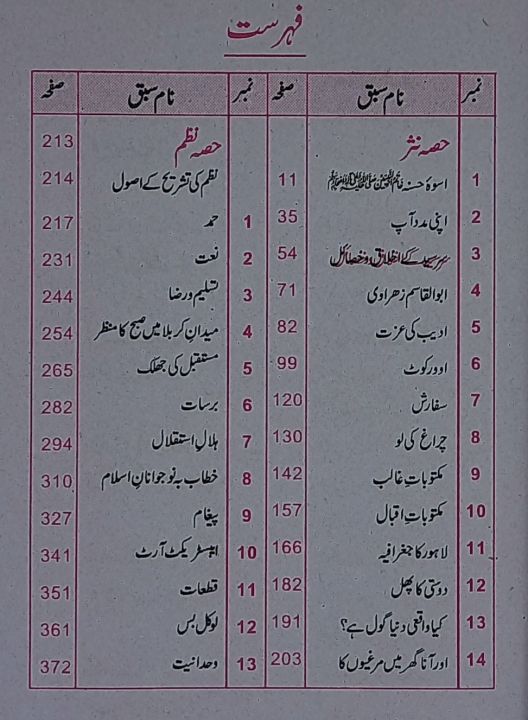 فہرست
نمبر نام سبق صفحہ
حصہ نثر
1 اسوۂ حسنہ خاتم النبیین ﷺ 11
2 اپنی مدد آپ 35
3 سرسید کے اخلاق و خصائل 54
4 ابوالقاسم زھراوی 71
5 ادیب کی عزت 82
6 اوورکوٹ 99
7 سفارش 120
8 چراغ کی لو 130
9 مکتوباتِ غالب 142
10 مکتوباتِ اقبال 157
11 لاہور کا جغرافیہ 166
12 دوستی کا پھل 182
13 کیا واقعی دنیا گول ہے؟ 191
14 اور آنا گھر میں مرغیوں کا 203
نمبر نام سبق صفحہ
حصہ نظم 213
نظم کی تشریح کے اصول 214
1 حمد 217
2 نعت 231
3 تسلیم و رضا 244
4 میدانِ کربلا میں صبح کا منظر 254
5 مستقبل کی جھلک 265
6 برسات 282
7 ہلالِ استقلال 294
8 خطاب بہ نوجوانانِ اسلام 310
9 پیغام 327
10 ایبسٹریکٹ آرٹ 341
11 قطعات 351
12 لوکل بس 361
13 وحدانیت 372